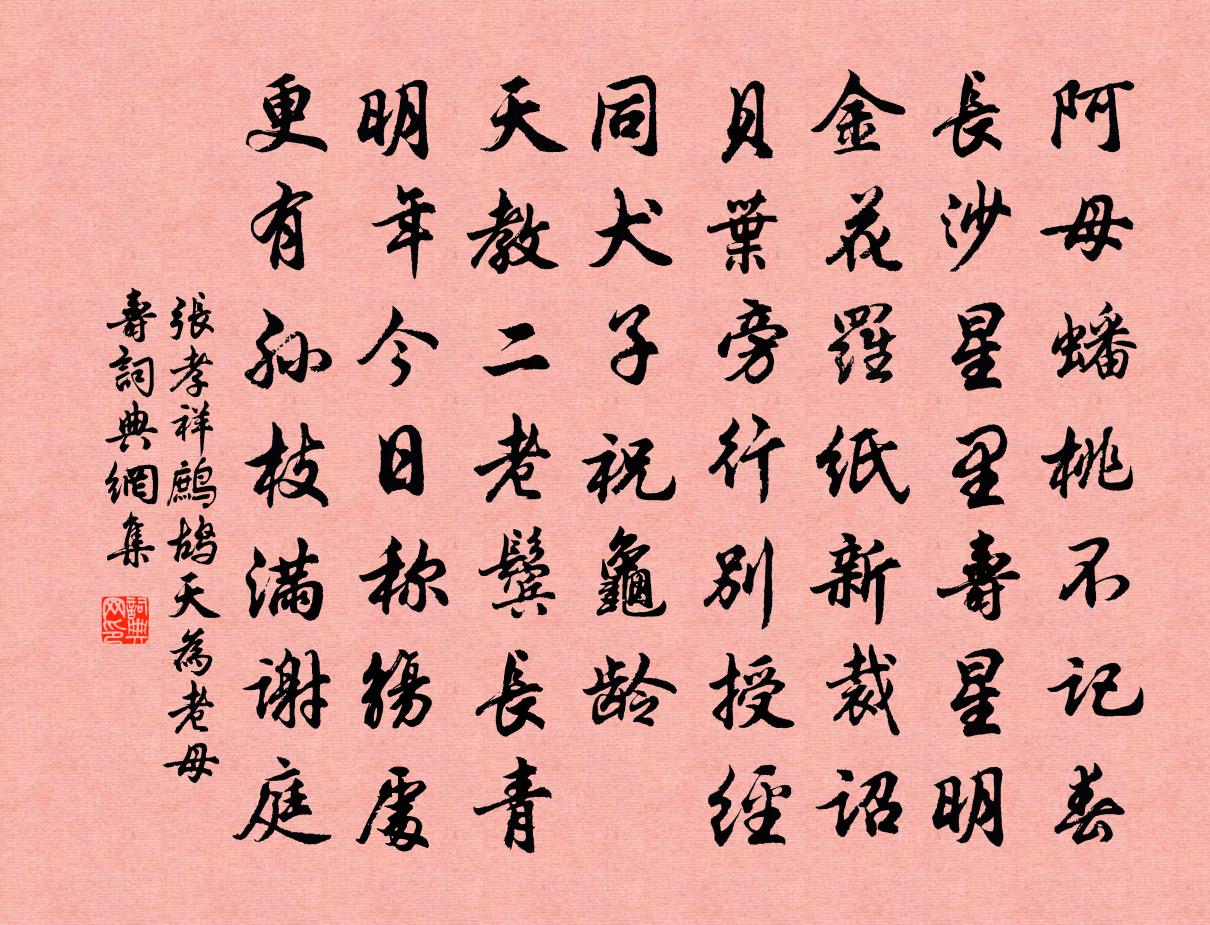 阿母蟠桃不记春
長沙星里壽星明
金花羅纸新裁诏
貝葉旁行别授经
同犬子祝龜龄
天教二老鬓長青
明年今日称觴處
更有孙枝满谢庭
張孝祥鷓鴣天為老母
壽詞典網集
詞典网印